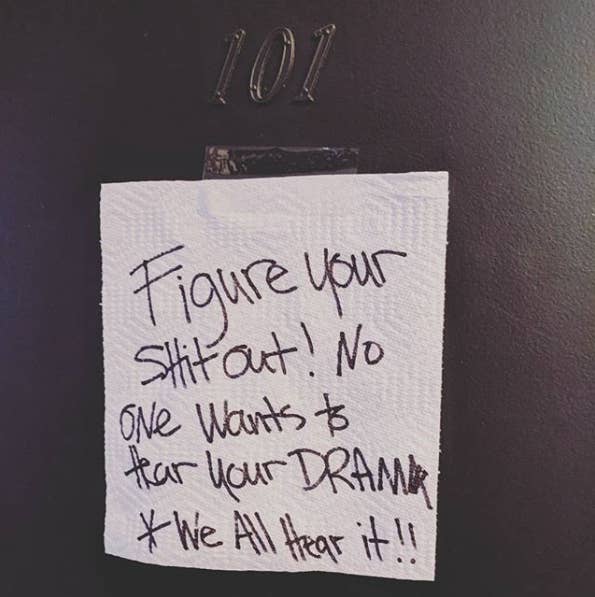 101
Figure your
Shit out! No
one wants to
Hear your DRAMA
* We All Hear it!!